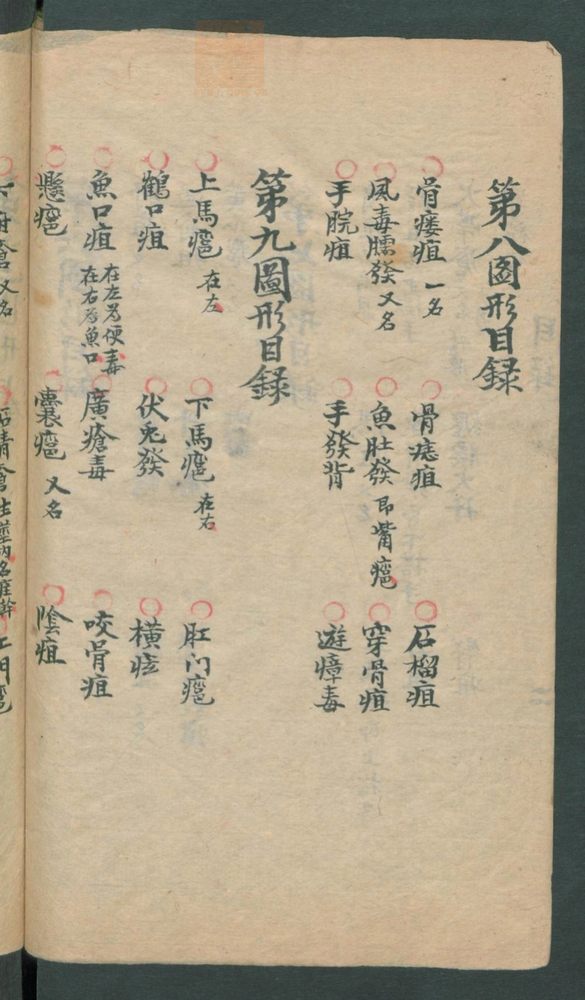 第八啚形目録
骨痿疽 一名 骨痣疽 石榴疽
風毒臑發 又名 魚肚發 即觜癰 穿骨疽
手腕疽 手發背 遊瘴毒
第九圖形目録
上馬癰 在左 下馬癰 在右 肛门癰
鶴口疽 伏兎發 橫痃
魚口疽 在左為便毒 在右為魚口 廣瘡毒 咬骨疽
懸癰 囊癰 又名 陰疽